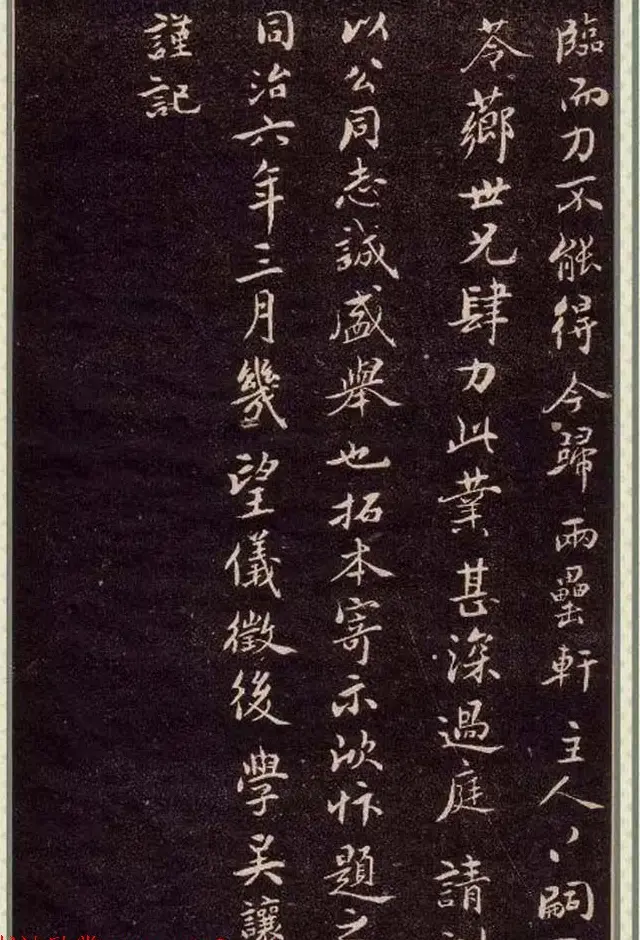 臨而力不能得今歸兩罍軒主人〻嗣
苓薌世兄肆力此業甚深過庭請
以公同志誠盛舉也拓本寄示欣忭題之
同治六年三月幾望儀徵後學吳讓
謹記